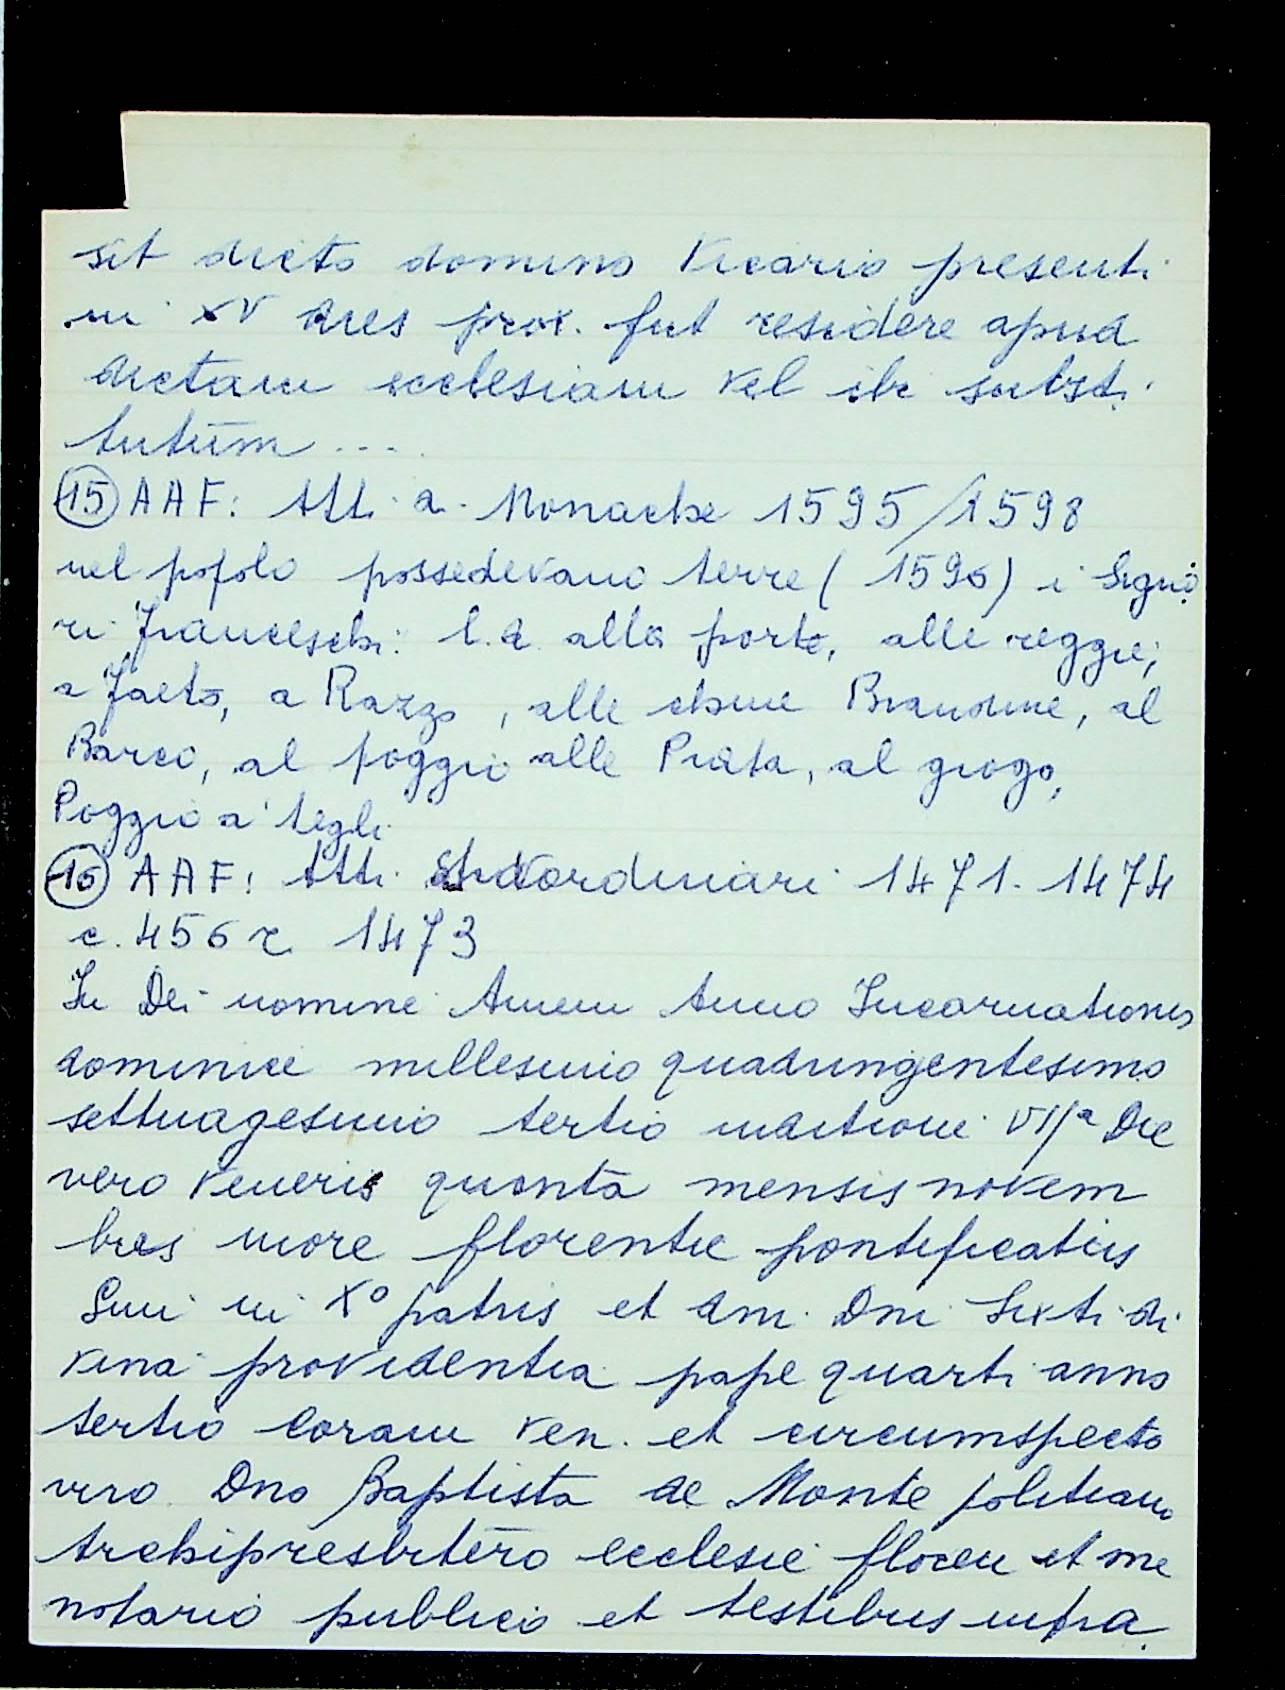 sit dicto domino Vicario presenti
in XV dies prox. fut residere apud
dictam ecclesiam vel ibi substi
tutum ....
15 AAF: Atti a. Monache 1595/1598
nel popolo possedevano terre ( 1596) i Signo
ri Franceschi: l.d. alla porte, alle reggie,
a Faeto, a Razzo, alle chiuse Brandine, al
Barco, al poggio alle Prata, al giogo,
Poggio a' tegli
16 AAF: Atti Straordinari 1471-1474
c. 456 r 1473
In Dei nomine Amen Anno Incarnationis
dominice millesimo quadringentesimo
settuagesimo tertio inditione VIIa Die
vero Veneris quinta mensis novem
bris more florentie pontificatus
Smi in Xo patris et dni. Dni Sixti di
vina providentia pape quarti anno
tertio Coram ven. et circumspecto
viro Dno Baptista de Monte politiano
Archipresbitero ecclesie floren et me
notario publico et testibus infra.